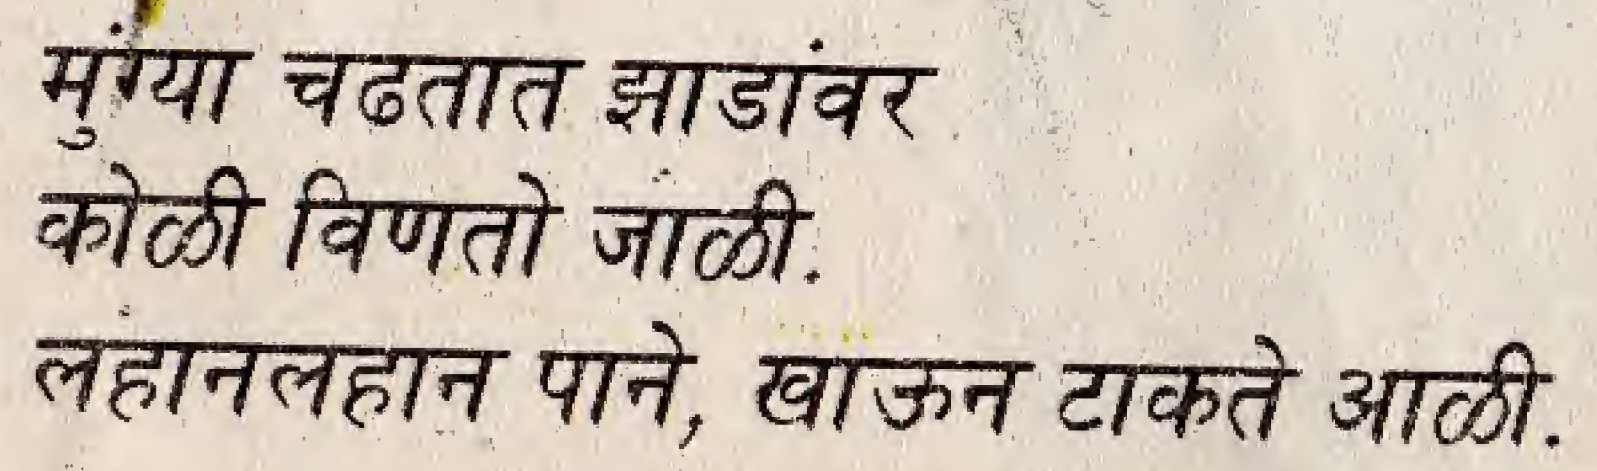 मुंग्या चढतात झाडांवर
कोळी विणतो जाळी.
लहानलहान पाने, खाऊन टाकते आळी.